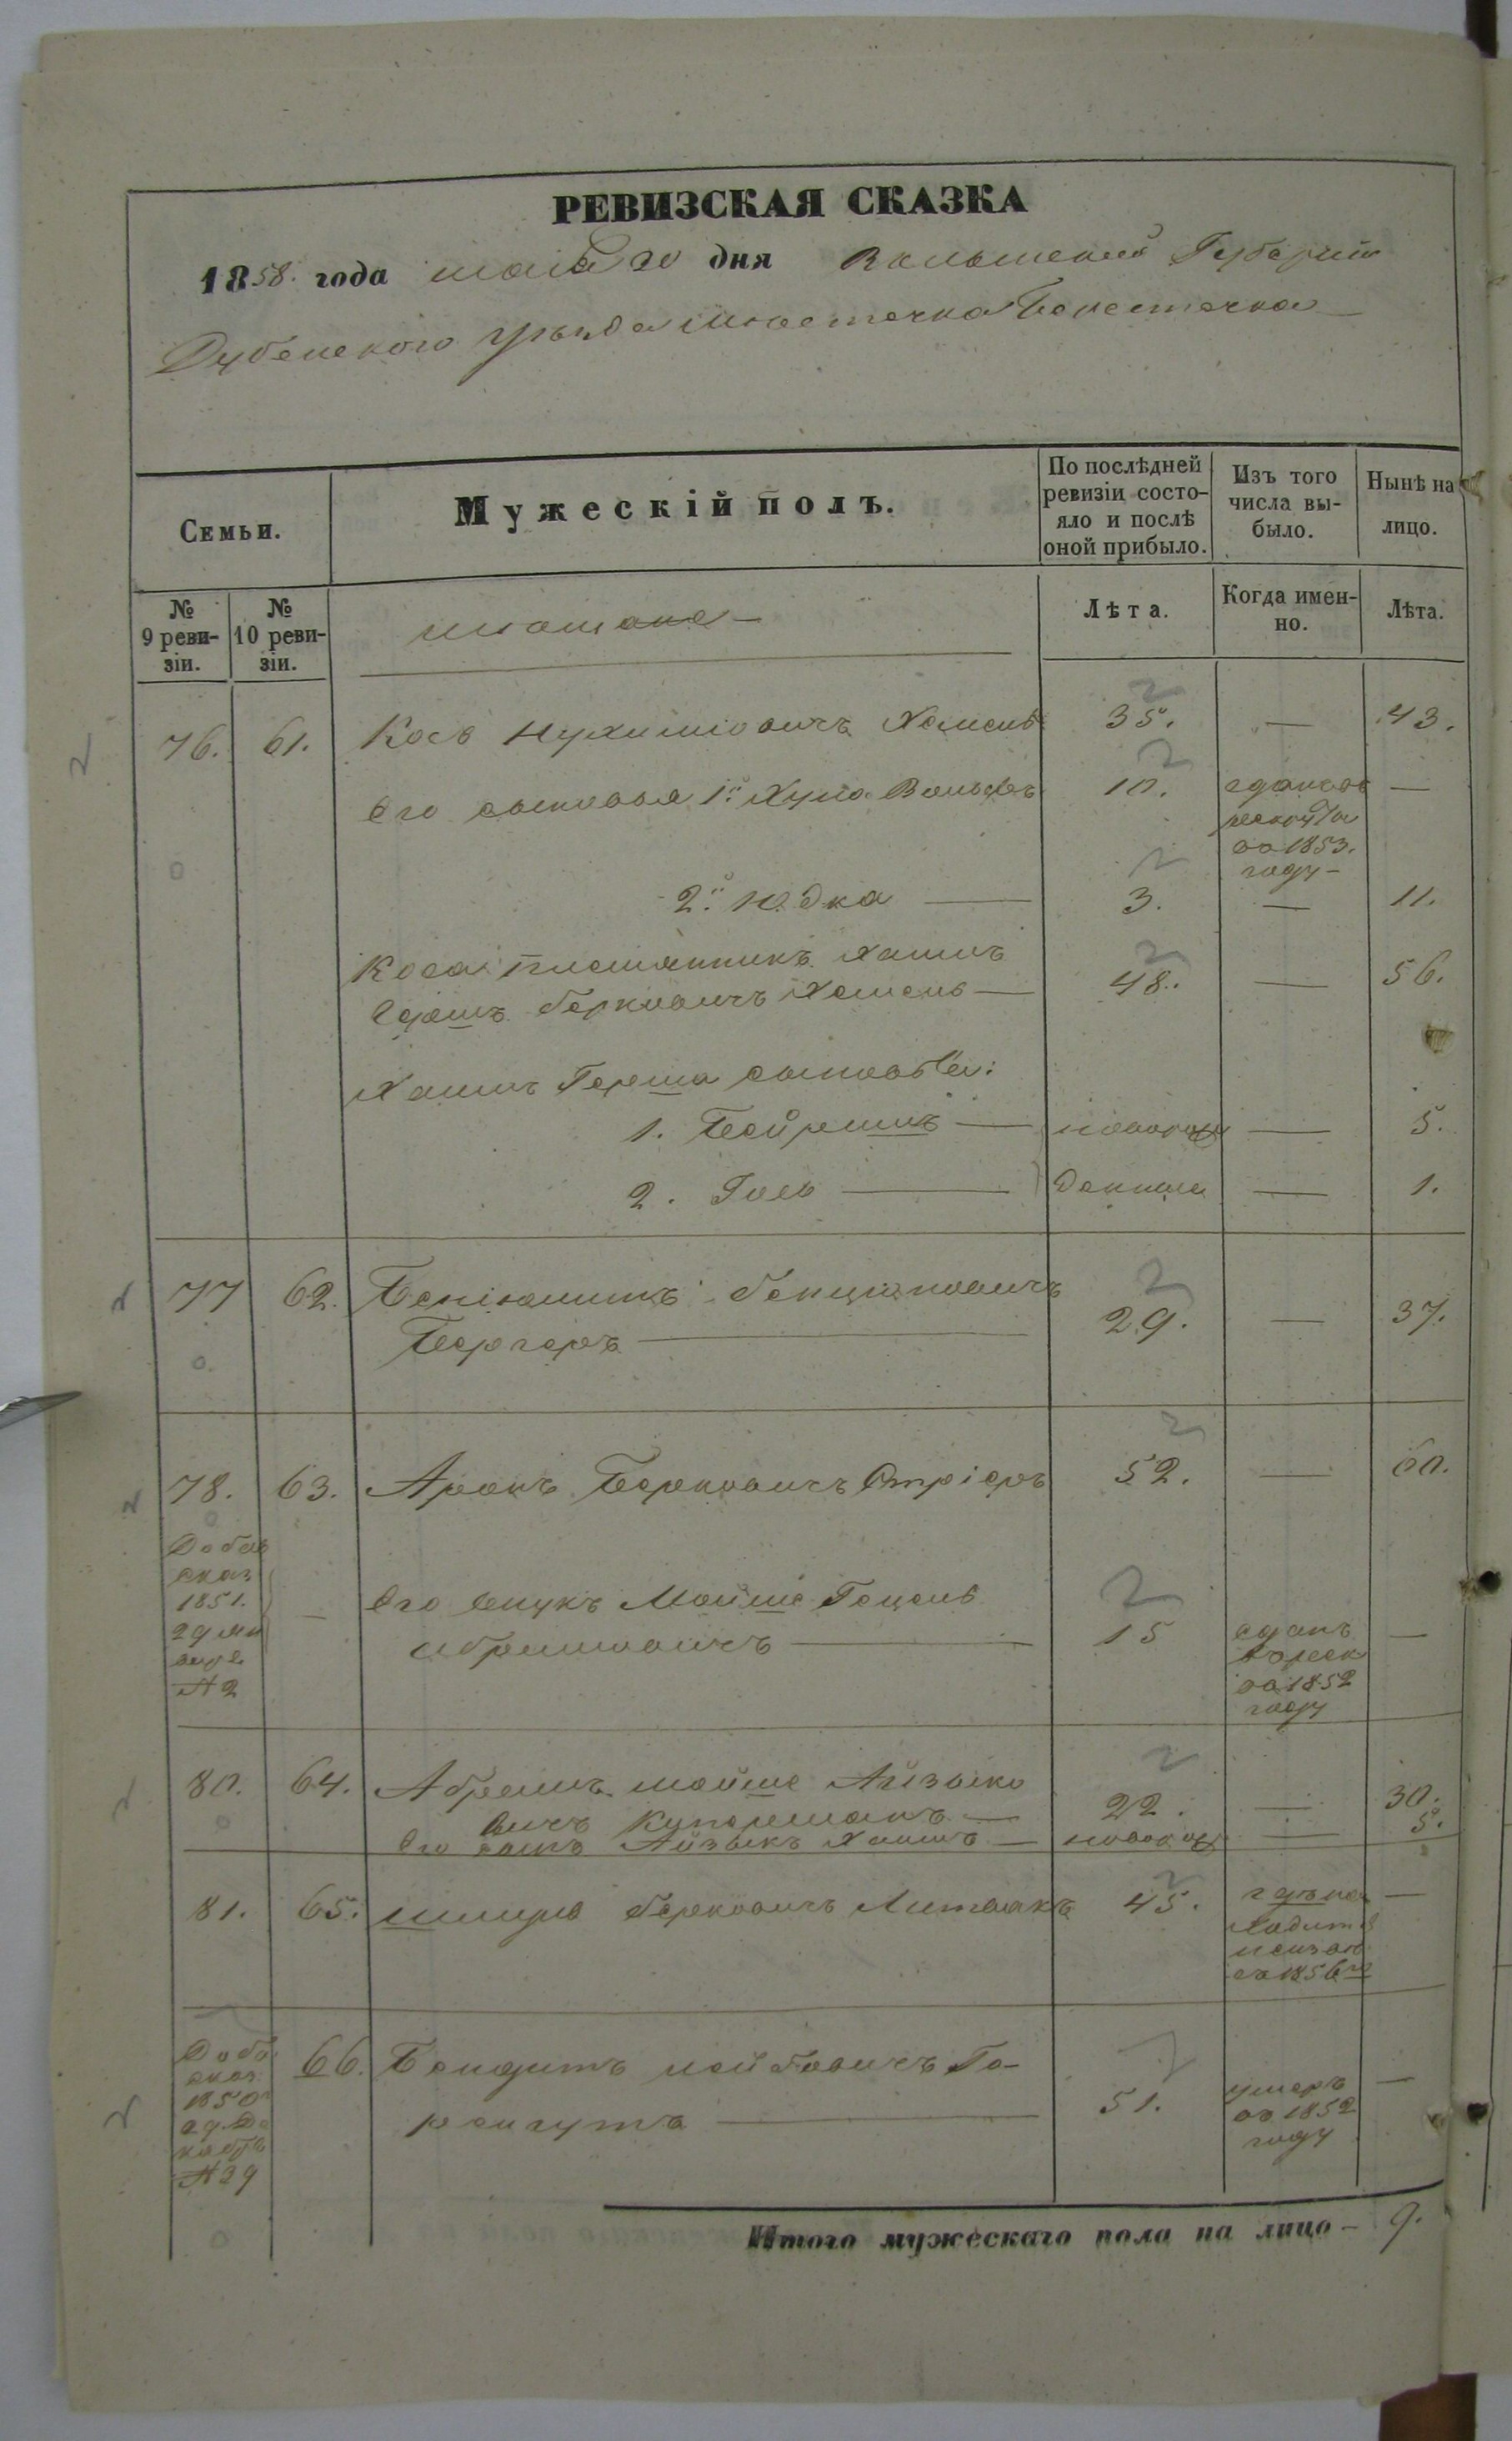 РЕВИЗСКАЯ СКАЗКА
1858. года маія 20 дня Волынской Губерніи
Дубенского уѣзда Местечка Берестечка
Семьи.
Мужескій полъ.
По послѣдней ревизіи состояло и послѣ оной прибыло.
Изъ того числа выбыло.
Нынѣ на лицо.
№ 9 ревизіи.
№ 10 ревизіи.
мещане
Лѣта.
Когда именно.
Лѣта.
76. 61. Нухимовичъ 35. — 43.
Его сыновья 1й Вольфъ 10. —
рекруты
въ 1853.
году
2й Юдка 3. — 11.
племянникъ Хаимъ
Герш Берковичъ 48. — 56.
Хаимъ Герша сыновья:
1. новорож — 5.
2. денные — 1.
77 62. Беніоминъ Бенціоновичъ
Бергеръ 29. — 37.
78. 63. Аронъ Берковичъ Стріеръ 52. — 60.
Добав
сказ
1851.
29
№ 2
— Его внукъ Мойше Гецель
Абрамовичъ 15 —
сданъ
въ рек
въ 1852
году
80. 64. Абрамъ Мойше Айзыко
вичъ Куперманъ 22. — 30.
Его сынъ Айзыкъ Хаимъ — новорож — 5.
81. 65. Шмиръ Берковичъ Литвакъ 45. —
где на
ходитс
неизвѣ
съ 1856 го
Доба
сказ
1850
29 Де
кабр
№ 29
66. Лейбовичъ Го-
ренгутъ 51. —
умеръ
въ 1852
году
Итого мужескаго пола на лицо — 9.